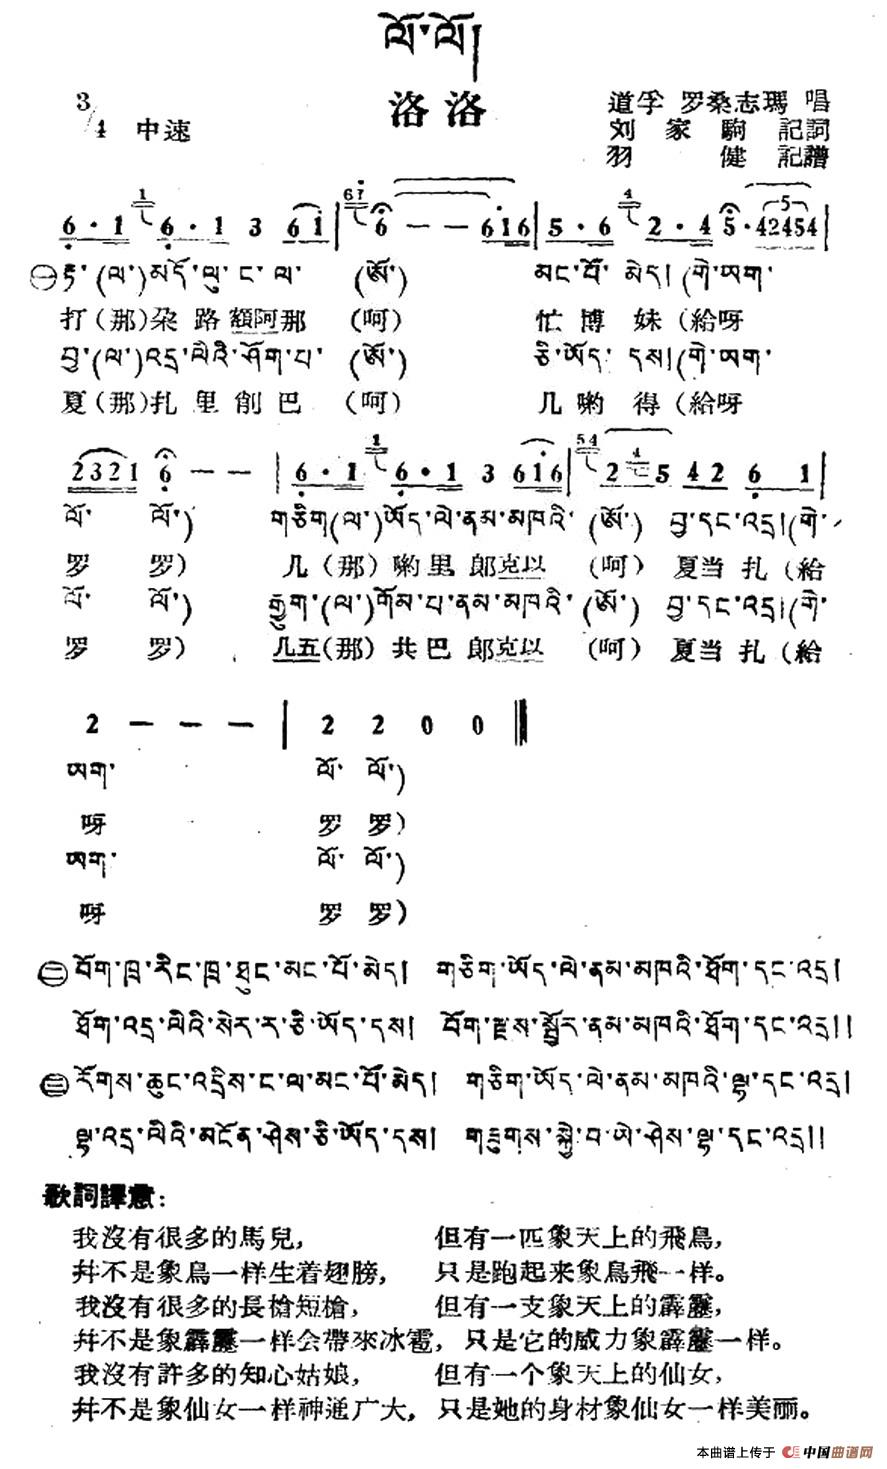 ལོ་ལོ།
洛洛
3/4 中速
道孚 罗桑志瑪 唱
刘家駒 記詞
羽健 記譜
6·1 6·1 3 61 | 6 - - 616 | 5·6 2·4 5·42454 |
㊀ རྟ་(ལ་)མདོ་ལུ་ང་ལ་ (ཨོ་) མང་པོ་མེད། (གེ་ཡག་
打(那)朶路額阿那 (呵) 忙博妹(給呀
བྱ་(ལ་)འདྲ་ལེའི་ཤོག་པ་ (ཨོ་) ཅི་ཡོད་དས། (གེ་ཡག་
夏(那)扎里削巴 (呵) 几喲得(給呀
2321 6 - - | 6·1 6·1 3 616 | 2 5 42 6 1 |
ལོ་ ལོ་) གཅིག(ལ་)ཡོད་ལེ་ནམ་མཁའི་ (ཨོ་) བྱ་དང་འདྲ། (གེ་
罗 罗) 几(那)喲里郞克以 (呵) 夏当扎(給
ལོ་ ལོ་) རྒྱུག་(ལ་)གོམ་པ་ནམ་མཁའི་ (ཨོ་) བྱ་དང་འདྲ། (གེ་
罗 罗) 几五(那)共巴郞克以 (呵) 夏当扎(給
2 - - - | 2 2 0 0 ‖
ཡག་ ལོ་ ལོ་)
呀 罗 罗)
ཡག་ ལོ་ ལོ་)
呀 罗 罗)
㊁ བོག་ཁྲ་རིང་ཁྲ་ཐུང་མང་པོ་མེད། གཅིག་ཡོད་ལེ་ནམ་མཁའི་ཐོག་དང་འདྲ།
ཐོག་འདྲ་ལིའི་སེར་ར་ཅི་ཡོད་དས། བོག་རྫས་སྦྱོར་ནམ་མཁའི་ཐོག་དང་འདྲ།།
㊂ རོགས་ཆུང་འདྲིས་ང་ལ་མང་པོ་མེད། གཅིག་ཡོད་ལེ་ནམ་མཁའི་ལྷ་དང་འདྲ།
ལྷ་འདྲ་ལིའི་མངོན་ཤེས་ཅི་ཡོད་དས། གཟུགས་སྐྱེ་བ་ཡེ་ཤེས་ལྷ་དང་འདྲ།།
歌詞譯意：
我沒有很多的馬兒， 但有一匹象天上的飛鳥，
幷不是象鳥一样生着翅膀， 只是跑起来象鳥飛一样。
我沒有很多的長槍短槍， 但有一支象天上的霹靂，
幷不是象霹靂一样会帶來冰雹，只是它的威力象霹靂一样。
我沒有許多的知心姑娘， 但有一个象天上的仙女，
幷不是象仙女一样神通广大，只是她的身材象仙女一样美丽。
本曲谱上传于 中国曲谱网